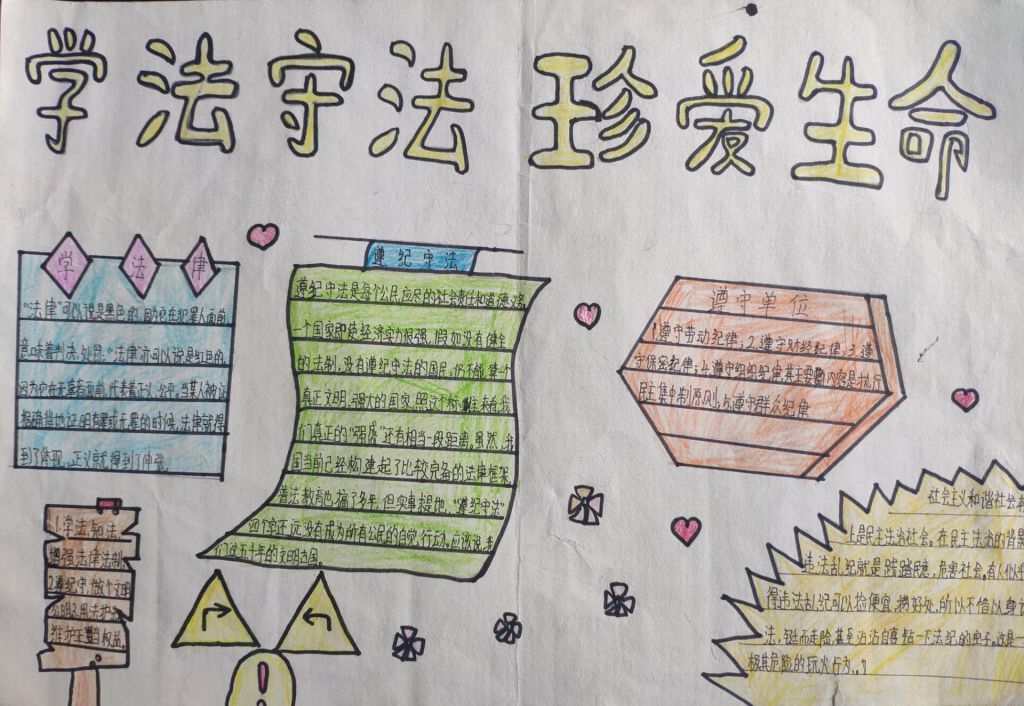 学法守法 珍爱生命
学法律
"法律"可以说是黑色的，因为它在犯罪人面前，
意味着判决、处罚；"法律"亦可以说是红色的，
因为它在无辜者面前，代表着正义、公平。当某人被证
据确凿地证明有罪或无罪的时候，法律就得
到了体现，正义就得到了伸张。
遵纪守法
遵纪守法是每个公民应尽的社会责任和道德义务，
一个国家即使经济实力很强，假如没有健全
的法制，没有遵纪守法的国民，仍不能算个
真正文明、强大的国家，照这个标准来看，我
们真正的"强盛"还有相当一段距离。虽然，我
国当前已经构建起了比较完备的法律框架，
普法教育也搞了多年，但实事求是地，"遵纪守法"
四个字还远没有成为所有公民的自觉行动。应该说，我
们这五千年的文明古国。
遵守单位
1.遵守劳动纪律；2.遵守财经纪律；3.遵
守保密纪律；4.遵守组织纪律，其主要内容是执行
民主集中制原则；5.遵守群众纪律
1.学法知法
增强法律法制
2.遵纪守，做个文明
公明3.用法护法
维护正当权益。
社会主义和谐社会本
上是民主生治社会。在民主法治的背景
违法乱纪就是践踏民意，危害社会。有人似乎
得违法乱纪可以捡便宜，捞好处，所以不惜以身试
法，铤而走险，甚至沾沾自喜钻一下法纪的空子。这是一
极其危险的玩火行为。